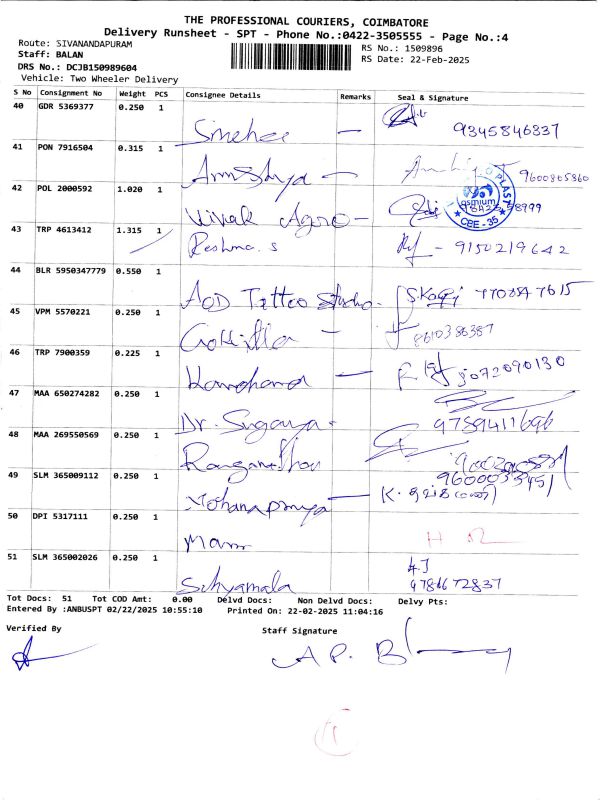 THE PROFESSIONAL COURIERS, COIMBATORE
Delivery Runsheet - SPT - Phone No.:0422-3505555 - Page No.:4
Route: SIVANANDAPURAM
RS No.: 1509896
Staff: BALAN
RS Date: 22-Feb-2025
DRS No.: DCJB150989604
Vehicle: Two Wheeler Delivery
S No Consignment No Weight PCS Consignee Details Remarks Seal & Signature
40 GDR 5369377 0.250 1
Sinehaa 9345846337
41 PON 7916504 0.315 1
9600805860
42 POL 2000592 1.020 1
Vivak Agro -
osmium
PLAST
CBE - 35
43 TRP 4613412 1.315 1
Reshma. S - 9150219642
44 BLR 5950347779 0.550 1
AOD Tattoo Studio - 7708547615
45 VPM 5570221 0.250 1
Gokila - 8610386387
46 TRP 7900359 0.225 1
8072090130
47 MAA 650274282 0.250 1
Dr. Suganya - 9789411696
48 MAA 269550569 0.250 1
Ranganathan
49 SLM 365009112 0.250 1
Mohanapriya
50 DPI 5317111 0.250 1
Mani
51 SLM 365002026 0.250 1
Schyamala 9784672837
Tot Docs: 51 Tot COD Amt: 0.00 Delvd Docs: Non Delvd Docs: Delvy Pts:
Entered By :ANBUSPT 02/22/2025 10:55:10 Printed On: 22-02-2025 11:04:16
Verified By Staff Signature